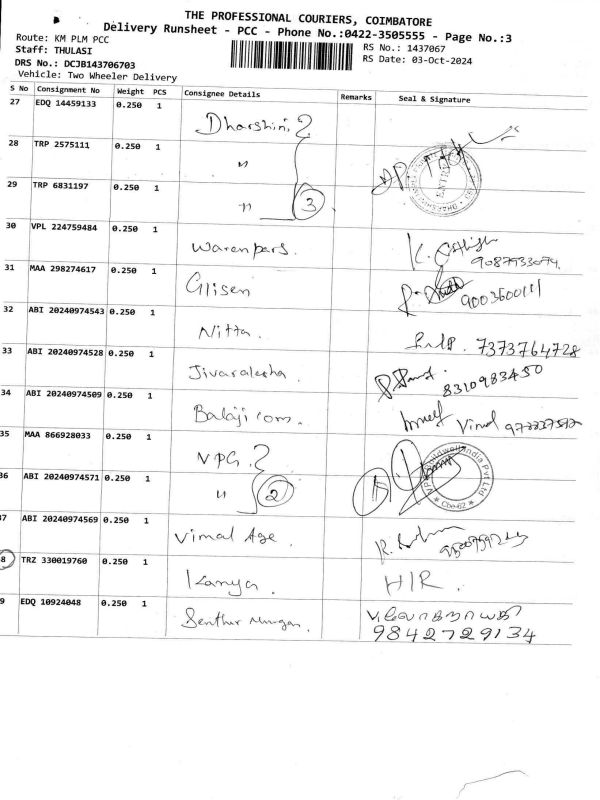 THE PROFESSIONAL COURIERS, COIMBATORE
Delivery Runsheet - PCC - Phone No.:0422-3505555 - Page No.:3
Route: KM PLM PCC
RS No.: 1437067
Staff: THULASI
RS Date: 03-Oct-2024
DRS No.: DCJB143706703
Vehicle: Two Wheeler Delivery
S No Consignment No Weight PCS Consignee Details Remarks Seal & Signature
27 EDQ 14459133 0.250 1 Dharshini
28 TRP 2575111 0.250 1 "
29 TRP 6831197 0.250 1 " 3
30 VPL 224759484 0.250 1 K. Sathish
9087933079
31 MAA 298274617 0.250 1 Glisen 9003600111
32 ABI 20240974543 0.250 1 Nitta 7373764728
33 ABI 20240974528 0.250 1 8310983450
34 ABI 20240974509 0.250 1 Balaji com. Vimal
35 MAA 866928033 0.250 1 VPG
36 ABI 20240974571 0.250 1 " 2
Cbe-62
37 ABI 20240974569 0.250 1 Vimal Age.
8 TRZ 330019760 0.250 1 Kanya. HIR.
9 EDQ 10924048 0.250 1 Senthur Murugan.
9842729134